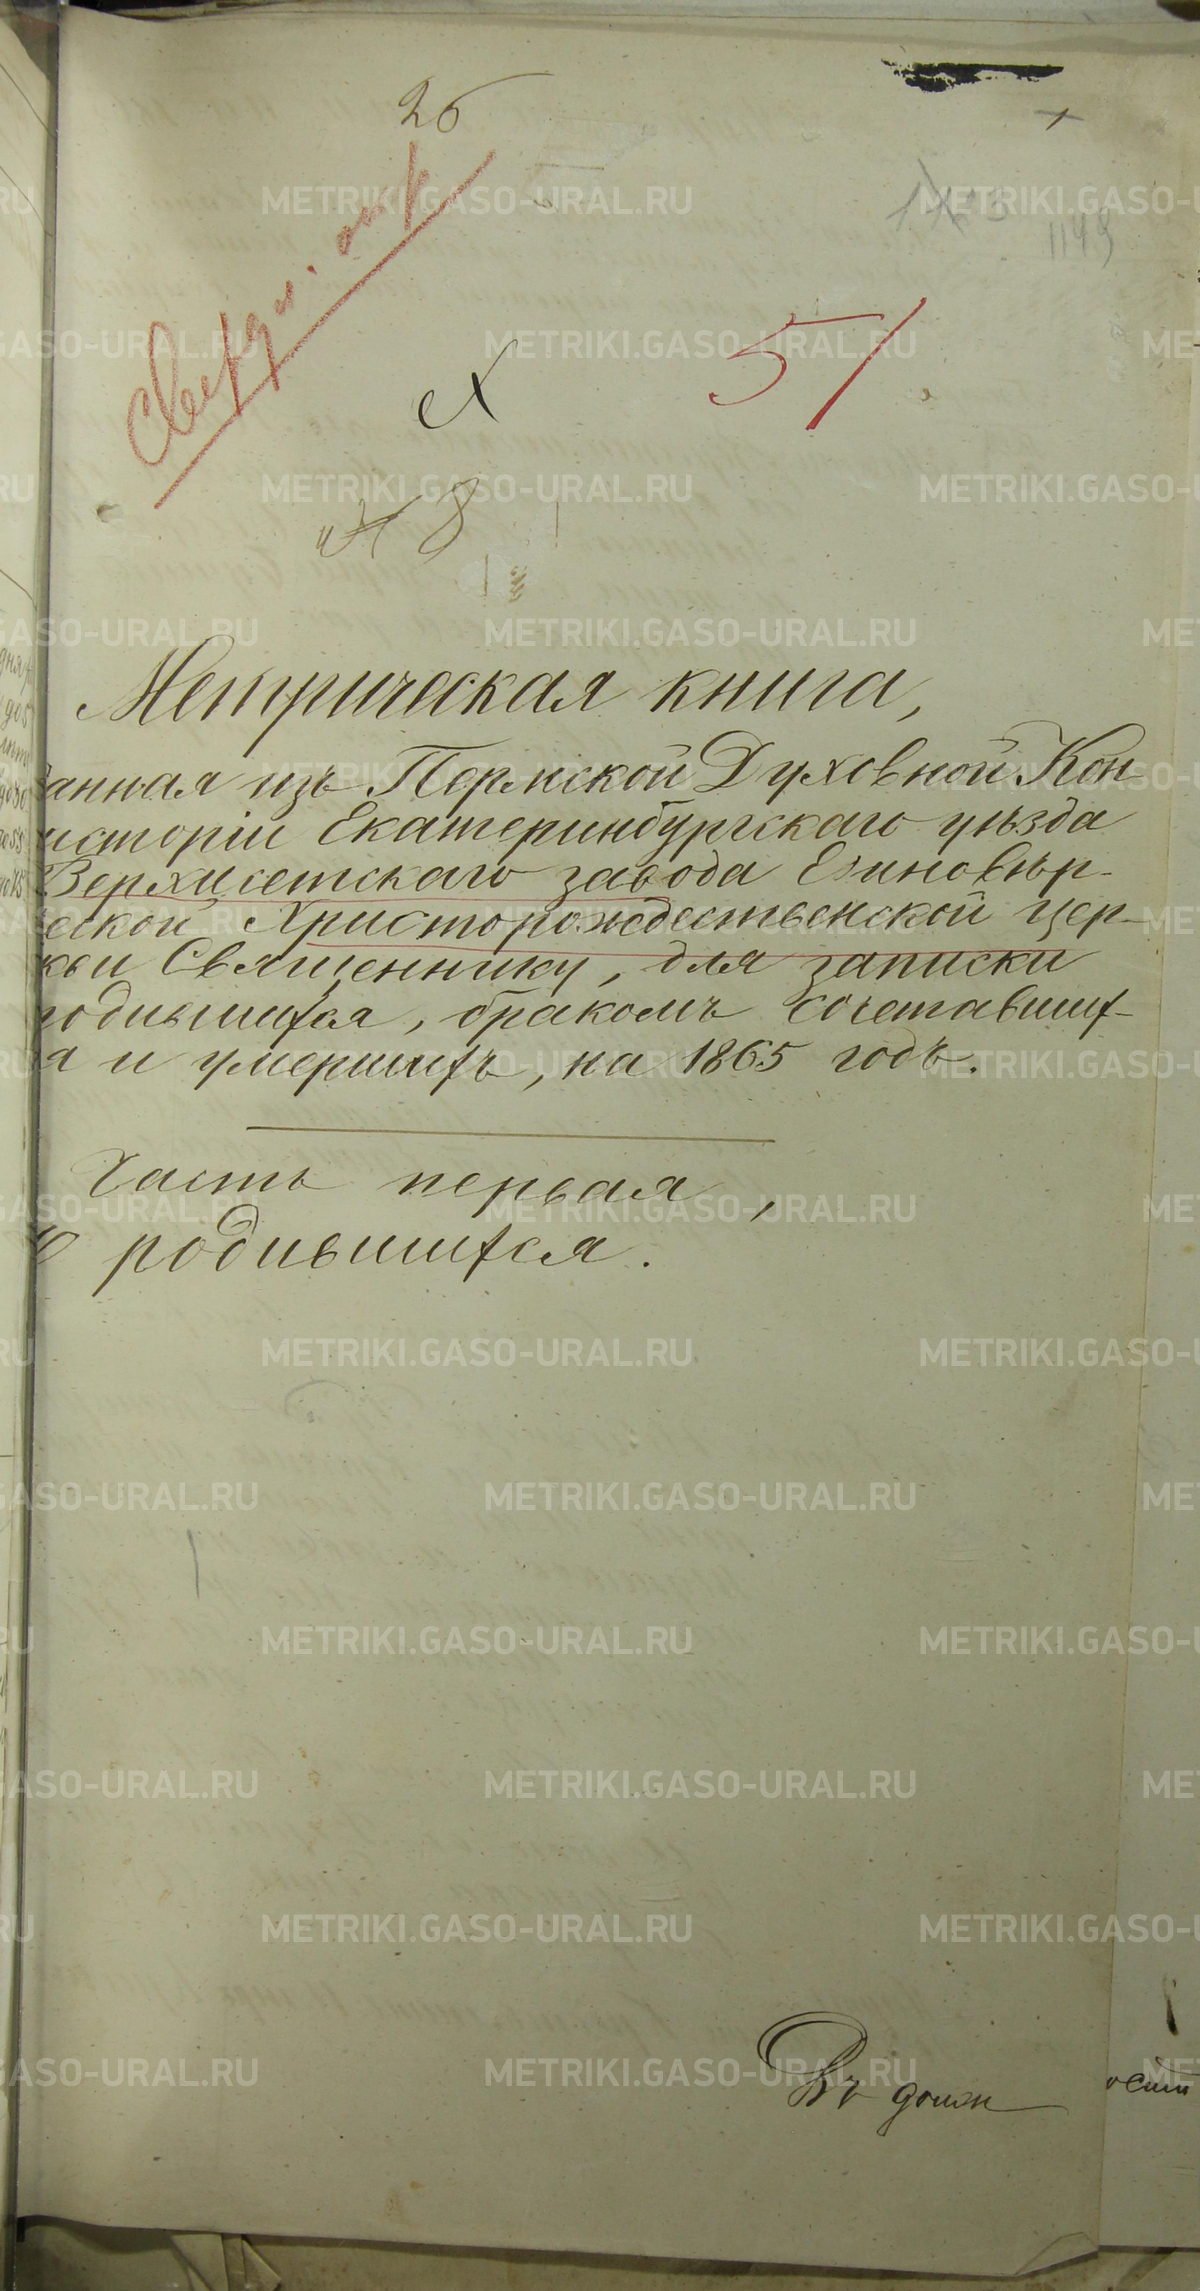 26
Свердл. отр
1199
51
№ 8
Метрическая книга,
данная изъ Пермской Духовной Кон
систоріи Екатеринбургскаго уѣзда
Верхисетскаго завода Единовѣр-
ческой Христорождественской цер-
кви Священнику, для записки
родившихся, бракомъ сочетавших-
ся и умершихъ, на 1865 годъ.
Часть первая,
О родившихся.
Въ долж
ости
METRIKI.GASO-URAL.RU